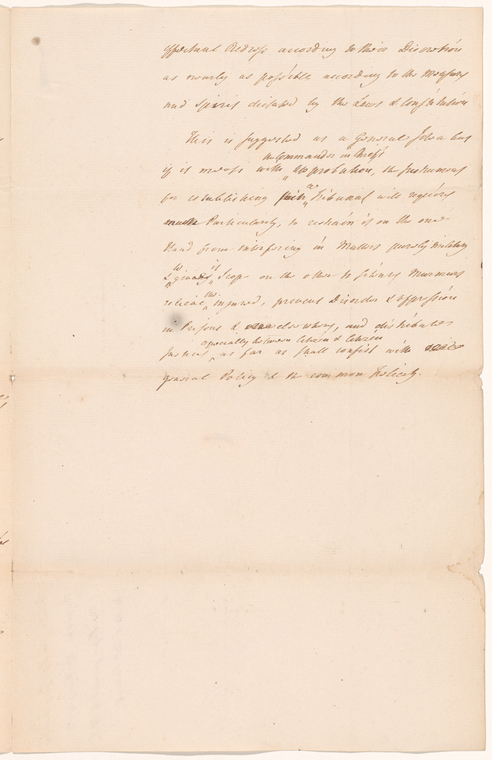 effectual Redress according to their Discretion
as nearly as possible according to the Measures
and Spirit dictated by the Laws & Constitution
This is suggested as a General Idea but
a Commander in Chief's
if it meets with Approbation, the Instrument
a
for establishing such Tribunal will require
much Particularity, to restrain it on the one
Hand from interfering in Matters purely military
to it
& give Scope on the other to silence Murmurs
the
relieve injured, prevent Disorder & oppression
in Prisons & elsewhere, and distribute
especially between Citizen & Citizen
Justice as far as shall consist with
general Policy & the common Felicity.